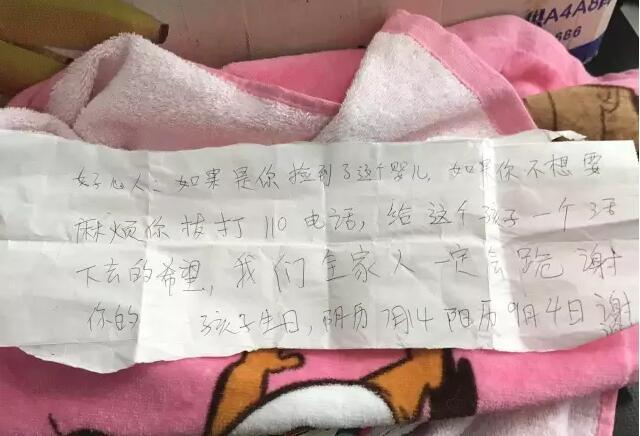 A4A8
686
好心人：如果是你捡到了这个婴儿，如果你不想要
麻烦你拨打110电话，给这个孩子一个活
下去的希望，我们全家人一定会跪谢
你的 孩子生日，阴历7月14 阳历9月4日谢
谢